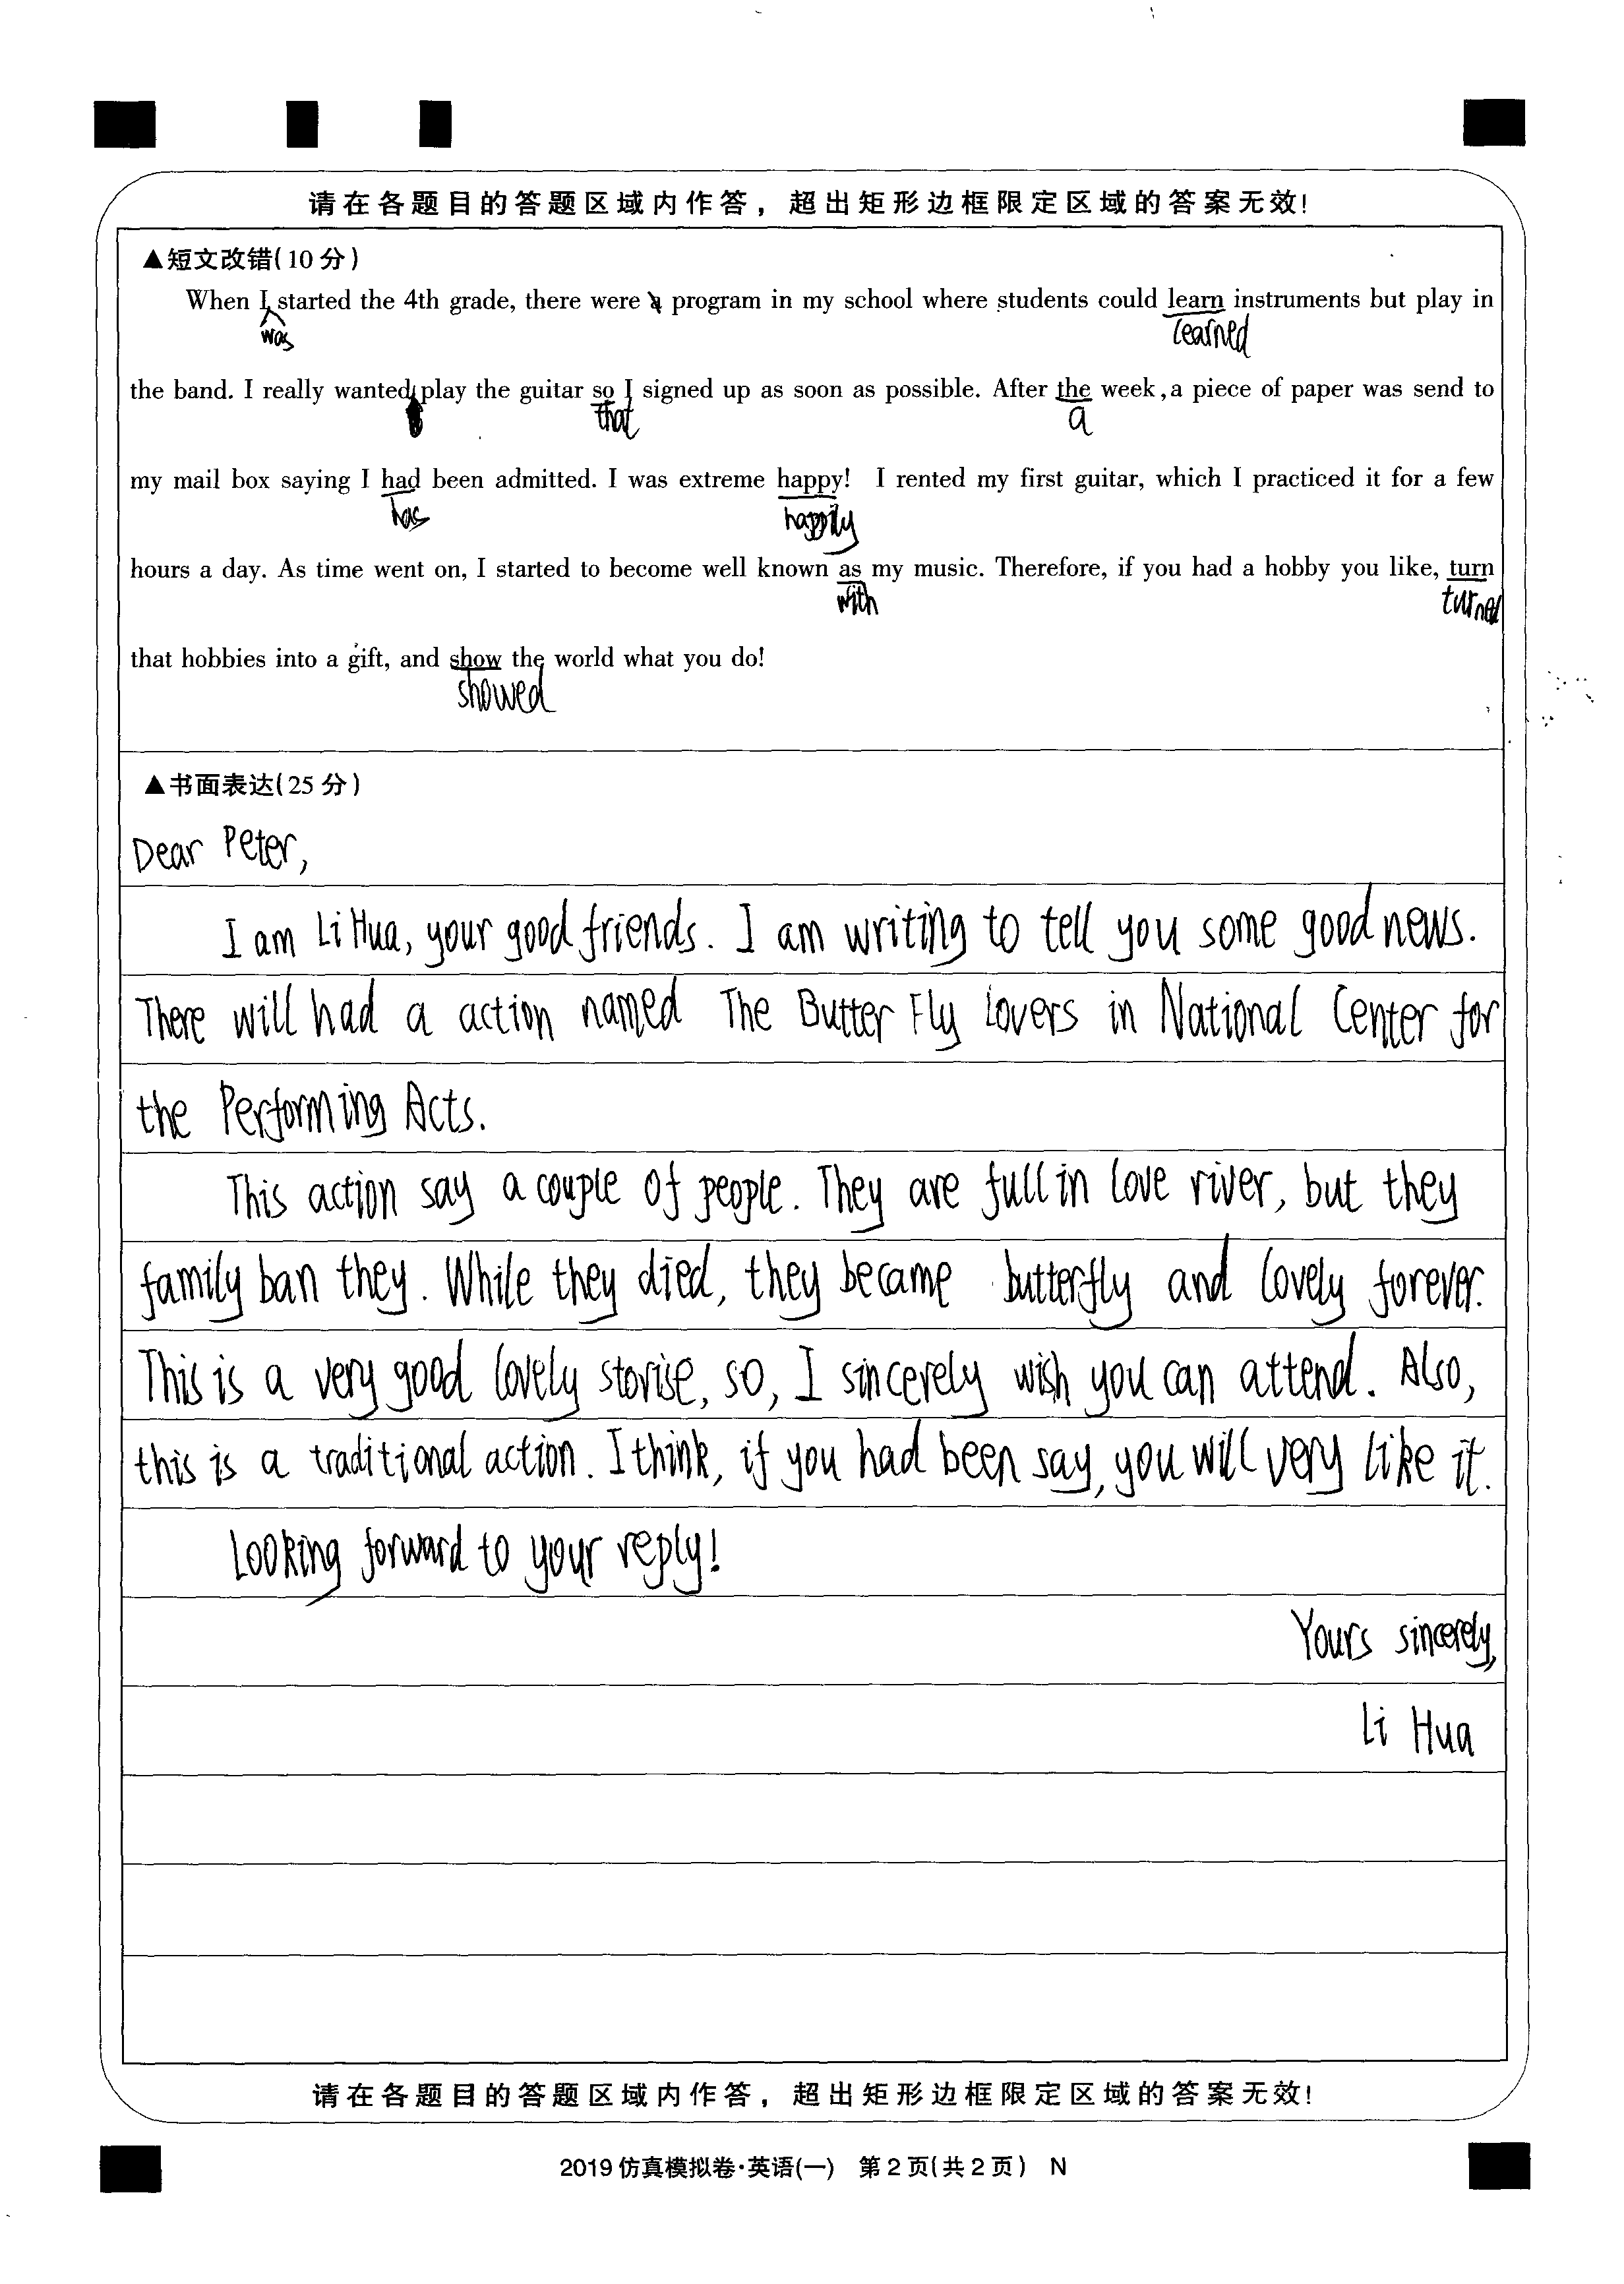 请在各题目的答题区域内作答，超出矩形边框限定区域的答案无效!
▲短文改错(10分)
When I started the 4th grade, there were a program in my school where students could learn instruments but play in
was
learned
the band. I really wanted play the guitar so I signed up as soon as possible. After the week, a piece of paper was send to
that
a
my mail box saying I had been admitted. I was extreme happy! I rented my first guitar, which I practiced it for a few
has
happily
hours a day. As time went on, I started to become well known as my music. Therefore, if you had a hobby you like, turn
with
turned
that hobbies into a gift, and show the world what you do!
showed
▲书面表达(25分)
Dear Peter,
I am Li Hua, your good friends. I am writing to tell you some good news.
There will had a action named The Butter Fly Lovers in National Center for
the Performing Acts.
This action say a couple of people. They are full in love river, but they
family ban they. While they died, they became butterfly and lovely forever.
This is a very good lovely storise, so, I sincerely wish you can attend. Also,
this is a traditional action. I think, if you had been say, you will very like it.
Looking forward to your reply!
Yours sincerely,
Li Hua
请在各题目的答题区域内作答，超出矩形边框限定区域的答案无效!
2019仿真模拟卷·英语(一) 第2页(共2页) N